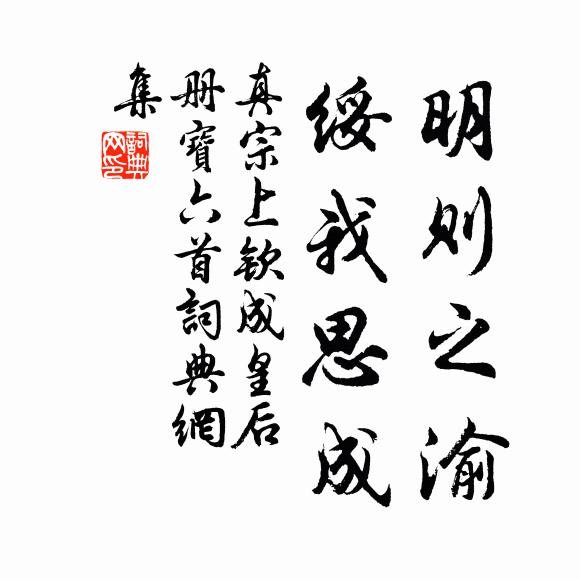 明则之渝
綏我思成
真宗上欽成皇后
册寶六首詞典網
集
詞典
网印